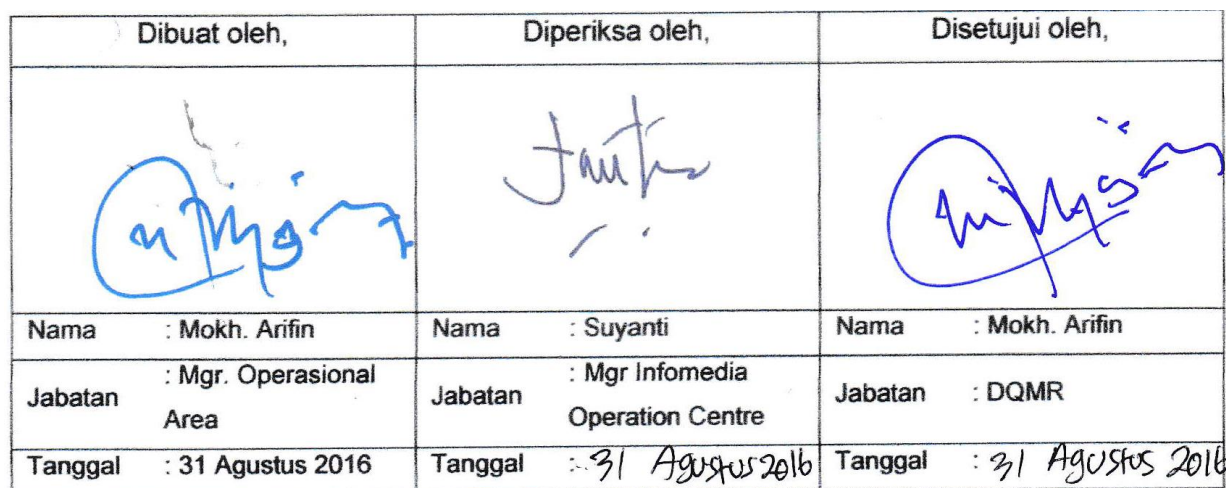 Dibuat oleh,
Diperiksa oleh,
Disetujui oleh,
Nama : Mokh. Arifin
Nama : Suyanti
Nama : Mokh. Arifin
Jabatan : Mgr. Operasional
Area
Jabatan : Mgr Infomedia
Operation Centre
Jabatan : DQMR
Tanggal : 31 Agustus 2016
Tanggal : 31 Agustus 2016
Tanggal : 31 Agustus 2016